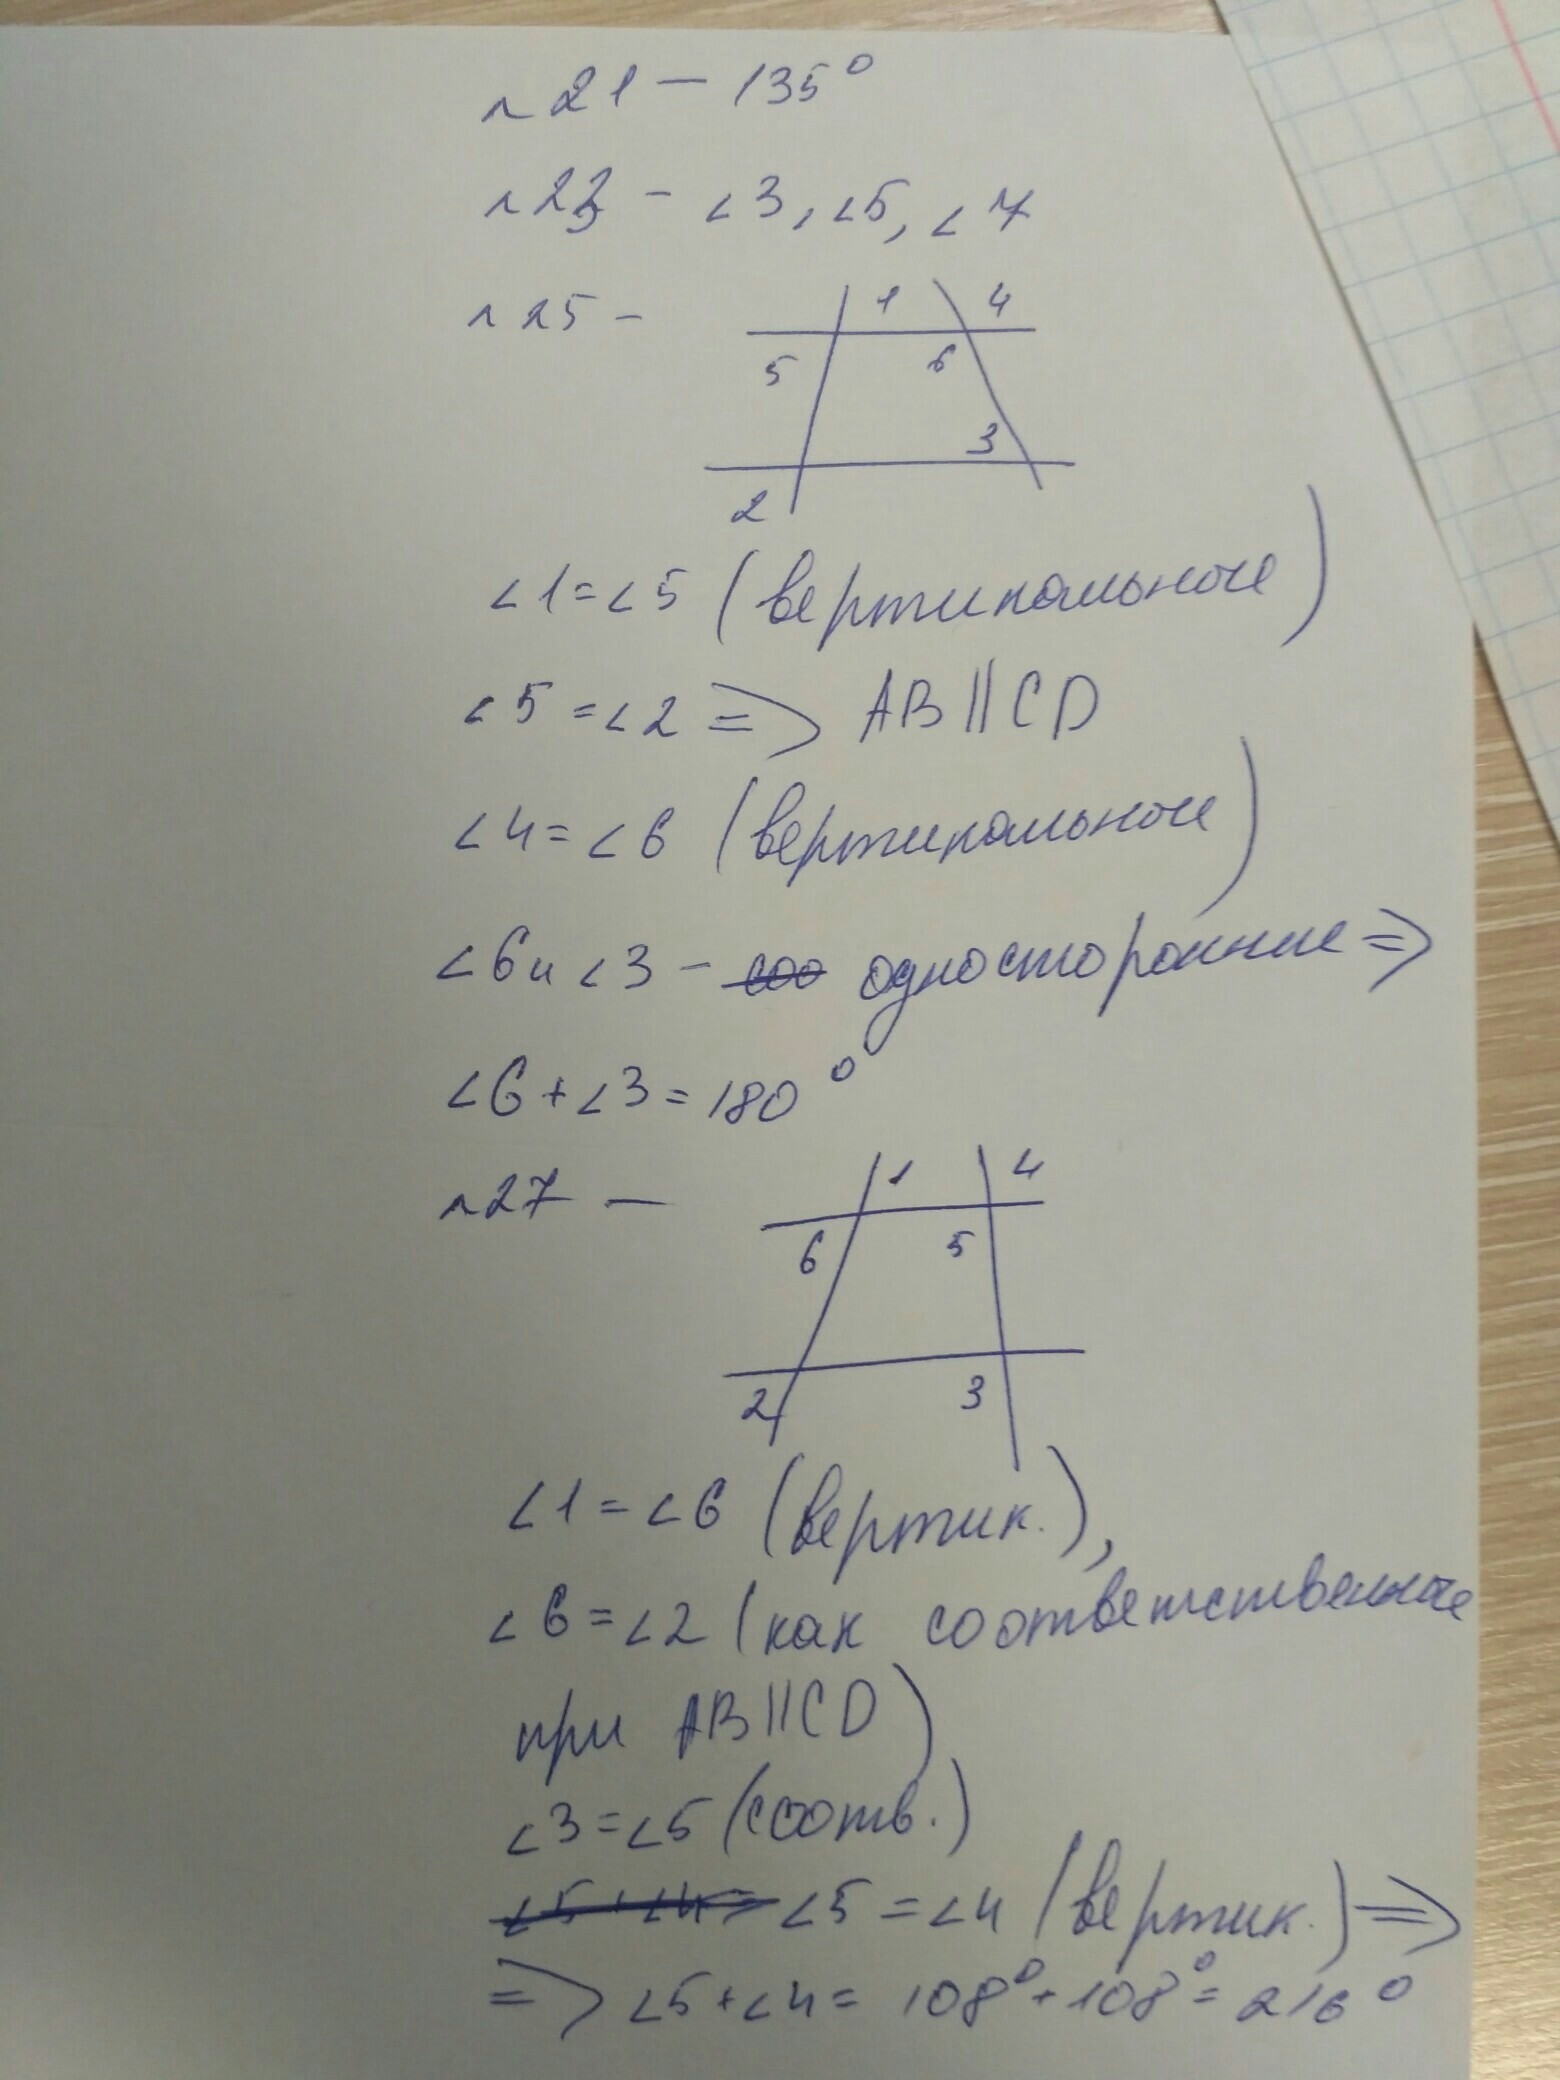 №21 — 135°
№23 - ∠3, ∠5, ∠7
№25 -
1 4
5 6
3
2
∠1=∠5 (вертикальные)
∠5=∠2 => AB||CD
∠4=∠6 (вертикальные)
∠6 и ∠3 - соо односторонние =>
∠6+∠3=180°
№27 —
1 4
6 5
2 3
∠1=∠6 (вертик.),
∠6=∠2 (как соответственные
при AB||CD)
∠3=∠5 (соотв.)
∠5+∠4= ∠5=∠4 (вертик.) =>
=> ∠5+∠4= 108°+108°=216°